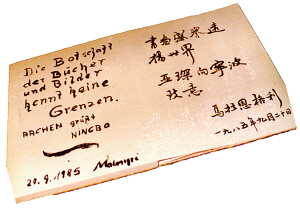 Die Botschaft
der Bücher
und Bilder
kennt keine
Grenzen.
AACHEN grüßt
NINGBO
20.9.1985
揚世界
亚琛向寧波
致意
一九八五年九月二十日